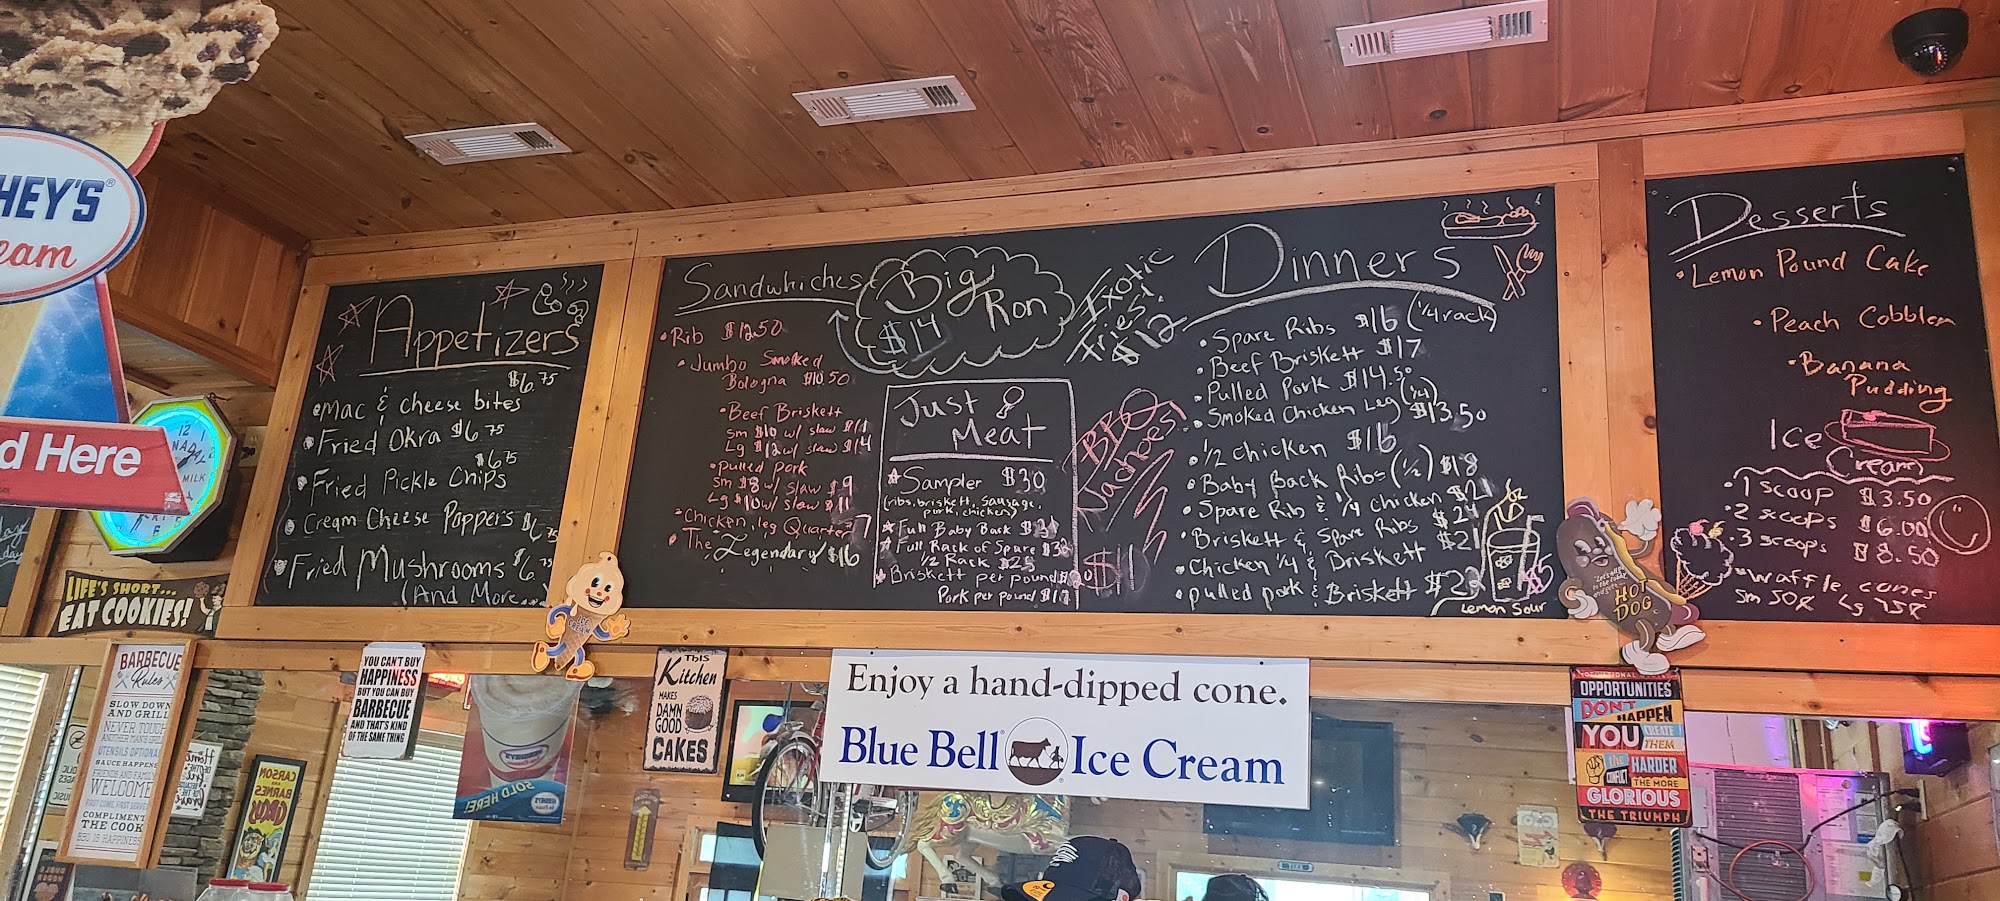 HEY'S
eam
d Here
LIFE'S SHORT...
EAT COOKIES!
Appetizers
$6.75
Mac & cheese bites
Fried Okra $6.75
$6.75
Fried Pickle Chips
Cream Cheese Poppers $6.75
Fried Mushrooms $6.75
(And More...
Sandwhiches
Rib $12.50
Jumbo Smoked
Bologna $10.50
Beef Briskett
Sm $10 w/ slaw $11
Lg $12 w/ slaw $14
Pulled pork
Sm $8 w/ slaw $9
Lg $10 w/ slaw $11
Chicken, leg Quarter 7
The Legendary $16
Big
Ron
$14
Exotic
Fries!
$12
Just
Meat
Sampler $30
(ribs, briskett, sausage,
pork, chicken)
Full Baby Back
Full Rack of Spare
1/2 Rack $25
Briskett per pound
Pork per pound
BBQ
Nachoes!
$11
Dinners
Spare Ribs $16 (1/4 rack)
Beef Briskett $17
Pulled Pork $14.50
Smoked Chicken Leg (1/4) $13.50
1/2 chicken $16
Baby Back Ribs (1/2) $18
Spare Rib & 1/4 chicken
Briskett & Spare Ribs $24
Chicken 1/4 & Briskett $21
pulled pork & Briskett
Lemon Sour
Desserts
Lemon Pound Cake
Peach Cobbler
Banana
Pudding
Ice
Cream
1 scoop $3.50
2 scoops $6.00
3 scoops $8.50
waffle cones
Sm 50¢ Lg 75¢
HOT
DOG
BARBECUE
Rules
SLOW DOWN
AND GRILL
NEVER TOUCH
UTENSILS OPTIONAL
SAUCE HAPPENS
FRIENDS AND FAMILY
WELCOME
FIRST COME, FIRST SERVE
COMPLIMENT
THE COOK
BBQ IS HAPPINESS
YOU CAN'T BUY
HAPPINESS
BUT YOU CAN BUY
BARBECUE
AND THAT'S KIND
OF THE SAME THING
SOLD HERE!
THIS
Kitchen
MAKES
DAMN
GOOD
CAKES
Enjoy a hand-dipped cone.
Blue Bell Ice Cream
OPPORTUNITIES
DON'T HAPPEN
YOU CREATE
THEM
the HARDER
CONFLICT THE MORE
GLORIOUS
THE TRIUMPH
CARSON
AND
BARNES
CIRCUS